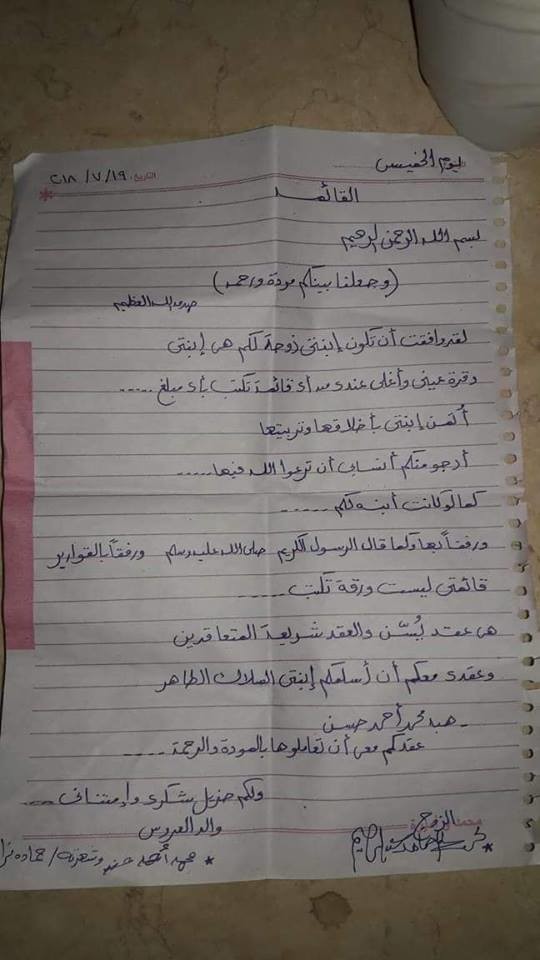 يوم الخميس
التاريخ: ٢٠١٨/٧/١٩
القائمة
بسم الله الرحمن الرحيم
(وجعلنا بينكم مودة ورحمة)
صدق الله العظيم
لقد وافقت أن تكون إبنتى زوجة لكم هى إبنتى
وقرة عينى وأغلى عندى من أى قائمة تكتب بأى مبلغ .....
أثمن إبنتى بأخلاقها وتربيتها
أرجو منكم أنسابى أن ترعوا الله فيها .....
كما لو كانت أبنه لكم .....
ورفقاً بها وكما قال الرسول الكريم صلى الله عليه وسلم ورفقاً بالقوارير
قائمتى ليست ورقة تكتب .....
هى عقد يُسّن والعقد شريعة المتعاقدين
وعقدى معكم أن أسلمكم إبنتى الملاك الطاهر
- هبه محمد أحمد حسن
عقدكم معى أن تعاملوها بالمودة والرحمة ....
ولكم جزيل شكرى وإمتنانى ...
والد العروس
الزوج
محمد أحمد حسن وشهرته / حماده